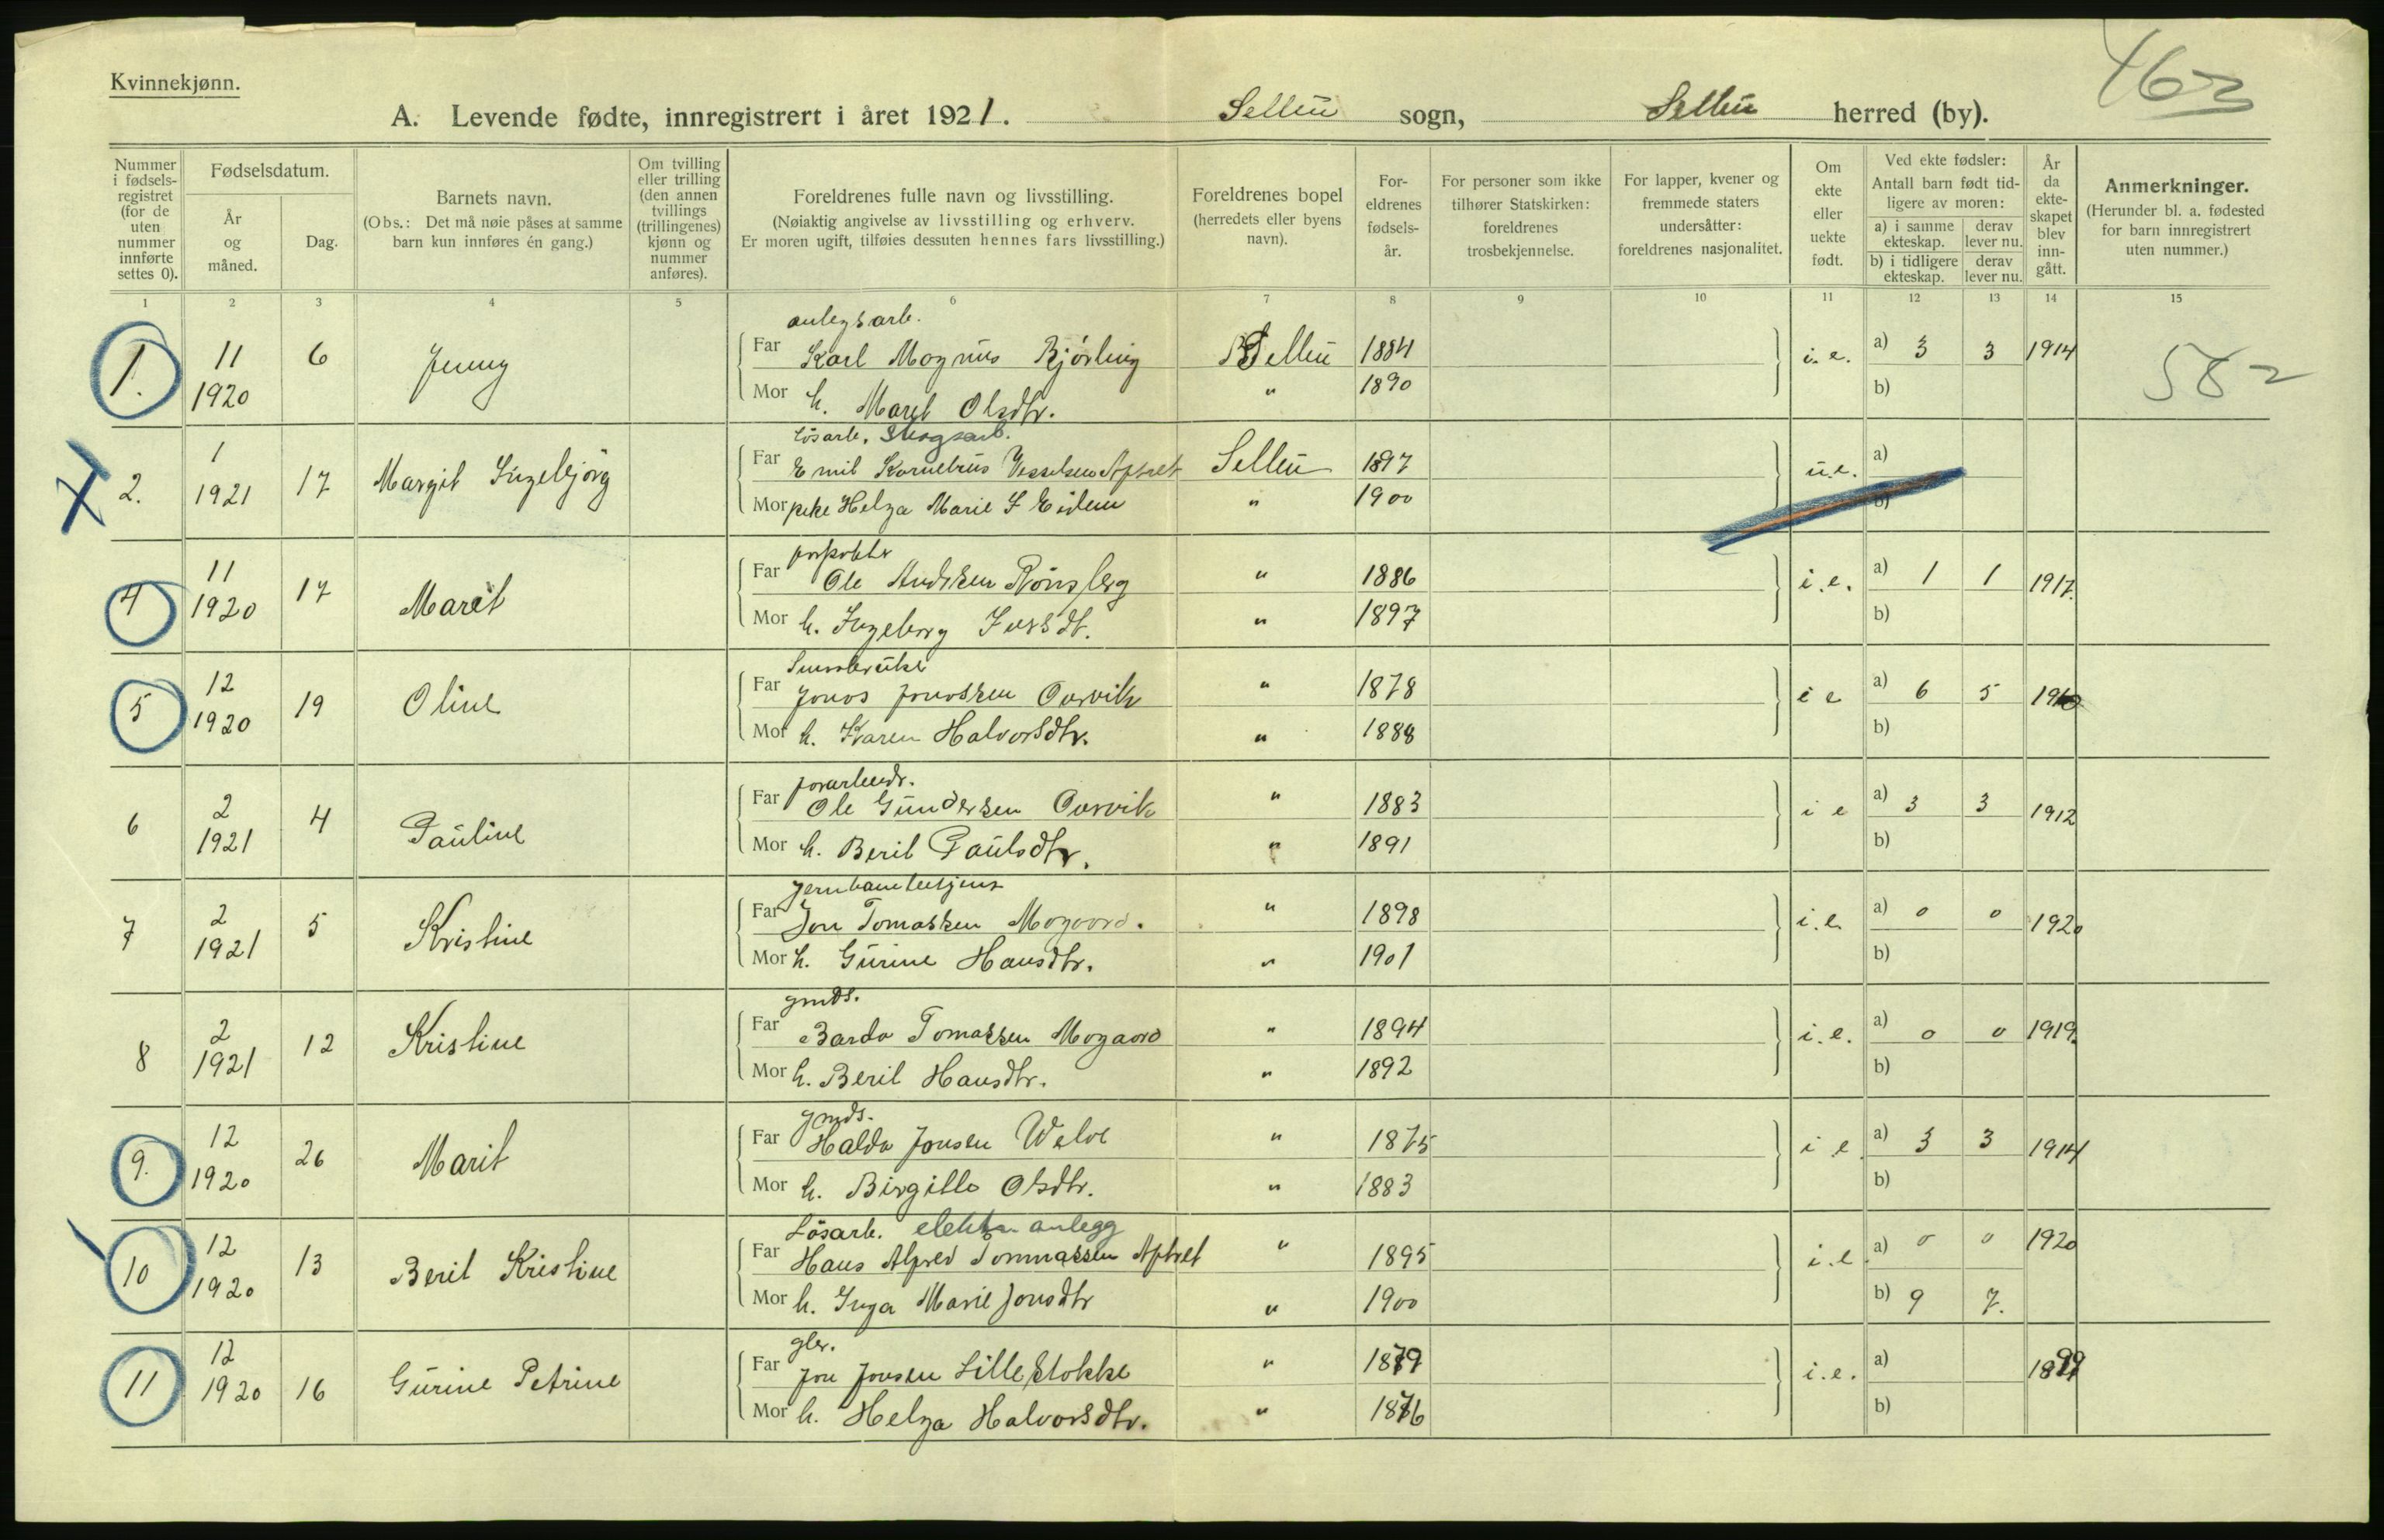 Kvinnekjønn.
A. Levende fødte, innregistrert i året 1921. Selbu sogn, Selbu herred (by).
463
Nummer i fødselsregistret (for de uten nummer innførte settes 0).
Fødselsdatum.
År og måned.
Dag.
Barnets navn.
(Obs.: Det må nøie påses at samme barn kun innføres én gang.)
Om tvilling eller trilling (den annen tvillings (trillingenes) kjønn og nummer anføres).
Foreldrenes fulle navn og livsstilling.
(Nøiaktig angivelse av livsstilling og erhverv.
Er moren ugift, tilføies dessuten hennes fars livsstilling.)
Foreldrenes bopel (herredets eller byens navn).
Foreldrenes fødselsår.
For personer som ikke tilhører Statskirken: foreldrenes trosbekjennelse.
For lapper, kvener og fremmede staters undersåtter: foreldrenes nasjonalitet.
Om ekte eller uekte født.
Ved ekte fødsler: Antall barn født tidligere av moren:
a) i samme ekteskap. derav lever nu.
b) i tidligere ekteskap. derav lever nu.
År da ekteskapet blev inngått.
Anmerkninger.
(Herunder bl. a. fødested for barn innregistrert uten nummer.)
1 2 3 4 5 6 7 8 9 10 11 12 13 14 15
anlegsarb.
1. 11 1920 6 Jenny Far Karl Magnus Bjørling Selbu 1884 i.e. a) 3 3 1914
Mor h. Marit Olsdtr. " 1890 b)
582
Løsarb. Skogsarb.
2. 1 1921 17 Margit Ingebjørg Far Emil Kornelius Vesselsen Aftret Selbu 1897 u.e. a)
Mor pike Helga Marie J Eidem " 1900 b)
forpakter
4 11 1920 17 Marit Far Ole Andersen Rønsberg " 1886 i.e. a) 1 1 1917.
Mor h. Ingeborg Iversdt. " 1897 b)
Småbruker
5 12 1920 19 Oline Far Jonas Jonassen Overvik " 1878 i e a) 6 5 1910
Mor h. Karen Halvorsdtr. " 1888 b)
forarbeidr.
6 2 1921 4 Pauline Far Ole Gundersen Overvik " 1883 i e a) 3 3 1912
Mor h. Berit Paulsdtr. " 1891 b)
Jernbanebetjent
7 2 1921 5 Kristine Far Jon Tomassen Mogaard. " 1898 i.e. a) 0 0 1920
Mor h. Gurine Hansdtr. " 1901 b)
gmds.
8 2 1921 12 Kristine Far Bardo Tomassen Mogaard " 1894 i.e. a) 0 0 1919.
Mor h. Berit Hansdtr. " 1892 b)
gmds.
9. 12 1920 26 Marit Far Haldo Jonsen Welve " 1875 i e. a) 3 3 1914
Mor h. Birgitte Olsdtr. " 1883 b)
Løsarb. elektr. anlegg
10 12 1920 13 Berit Kristine Far Hans Alfred Tommassen Aftret " 1895 i.e. a) 0 0 1920
Mor h. Inga Marie Jonsdtr " 1900 b) 9 7.
gbr.
11 12 1920 16 Gurine Petrine Far Jon Jonsen Lille Stokke " 1879 i.e. a) 1899
Mor h. Helga Halvorsdtr. " 1876 b)